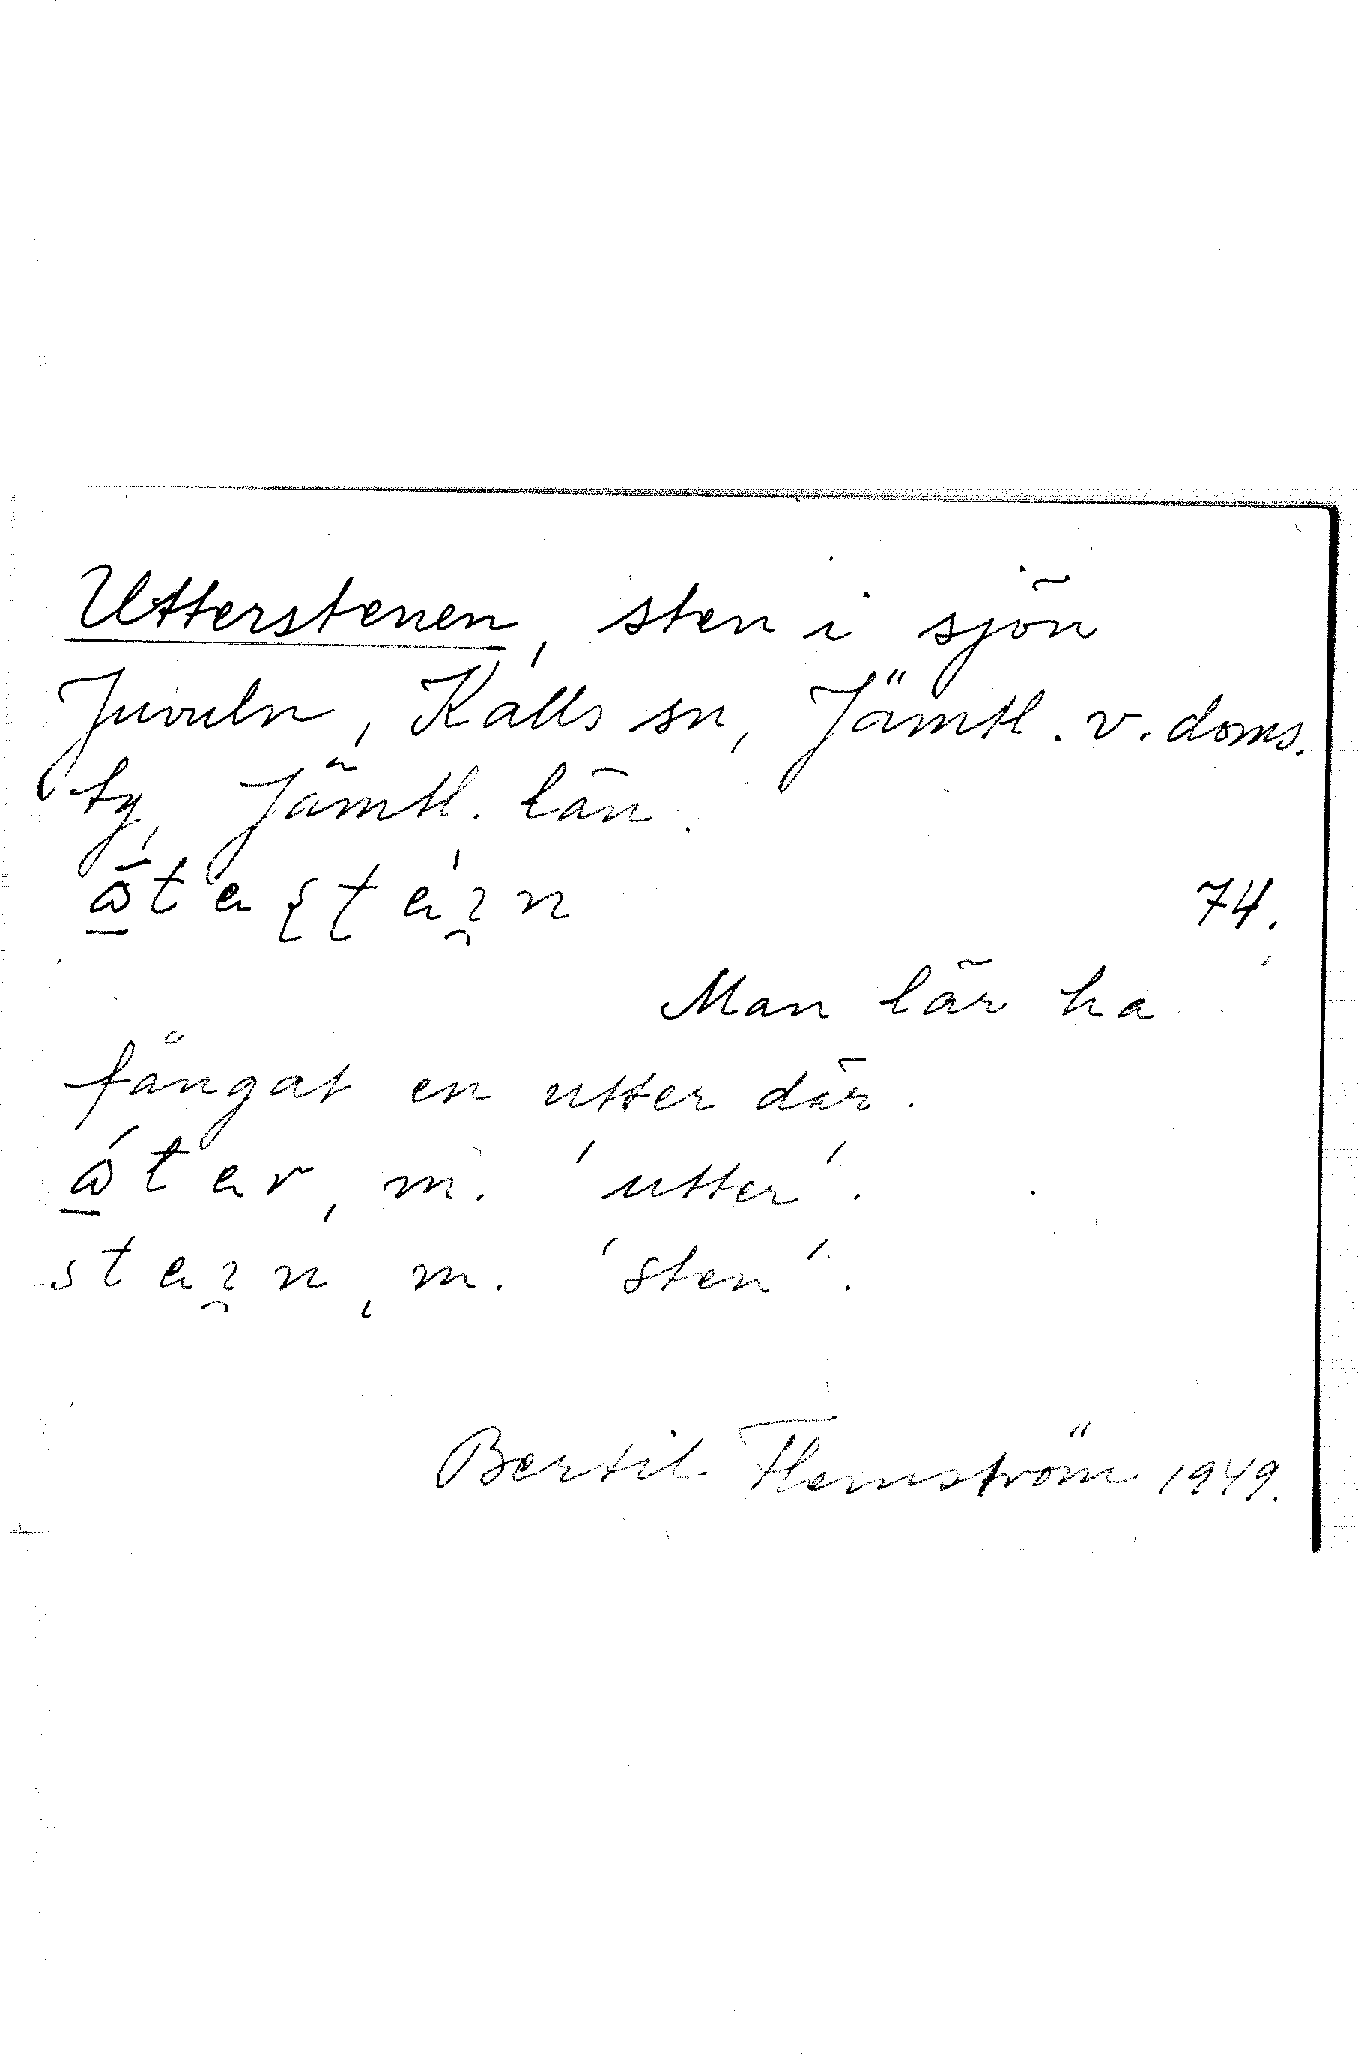 Utterstenen, sten i sjön
Juvuln, Kalls sn, Jämtl. v. doms.
tg, Jämtl. län.
74.
Man lär ha
fångat en utter där.
m. 'utter'.
m. 'sten'.
Bertil Flemström 1949.